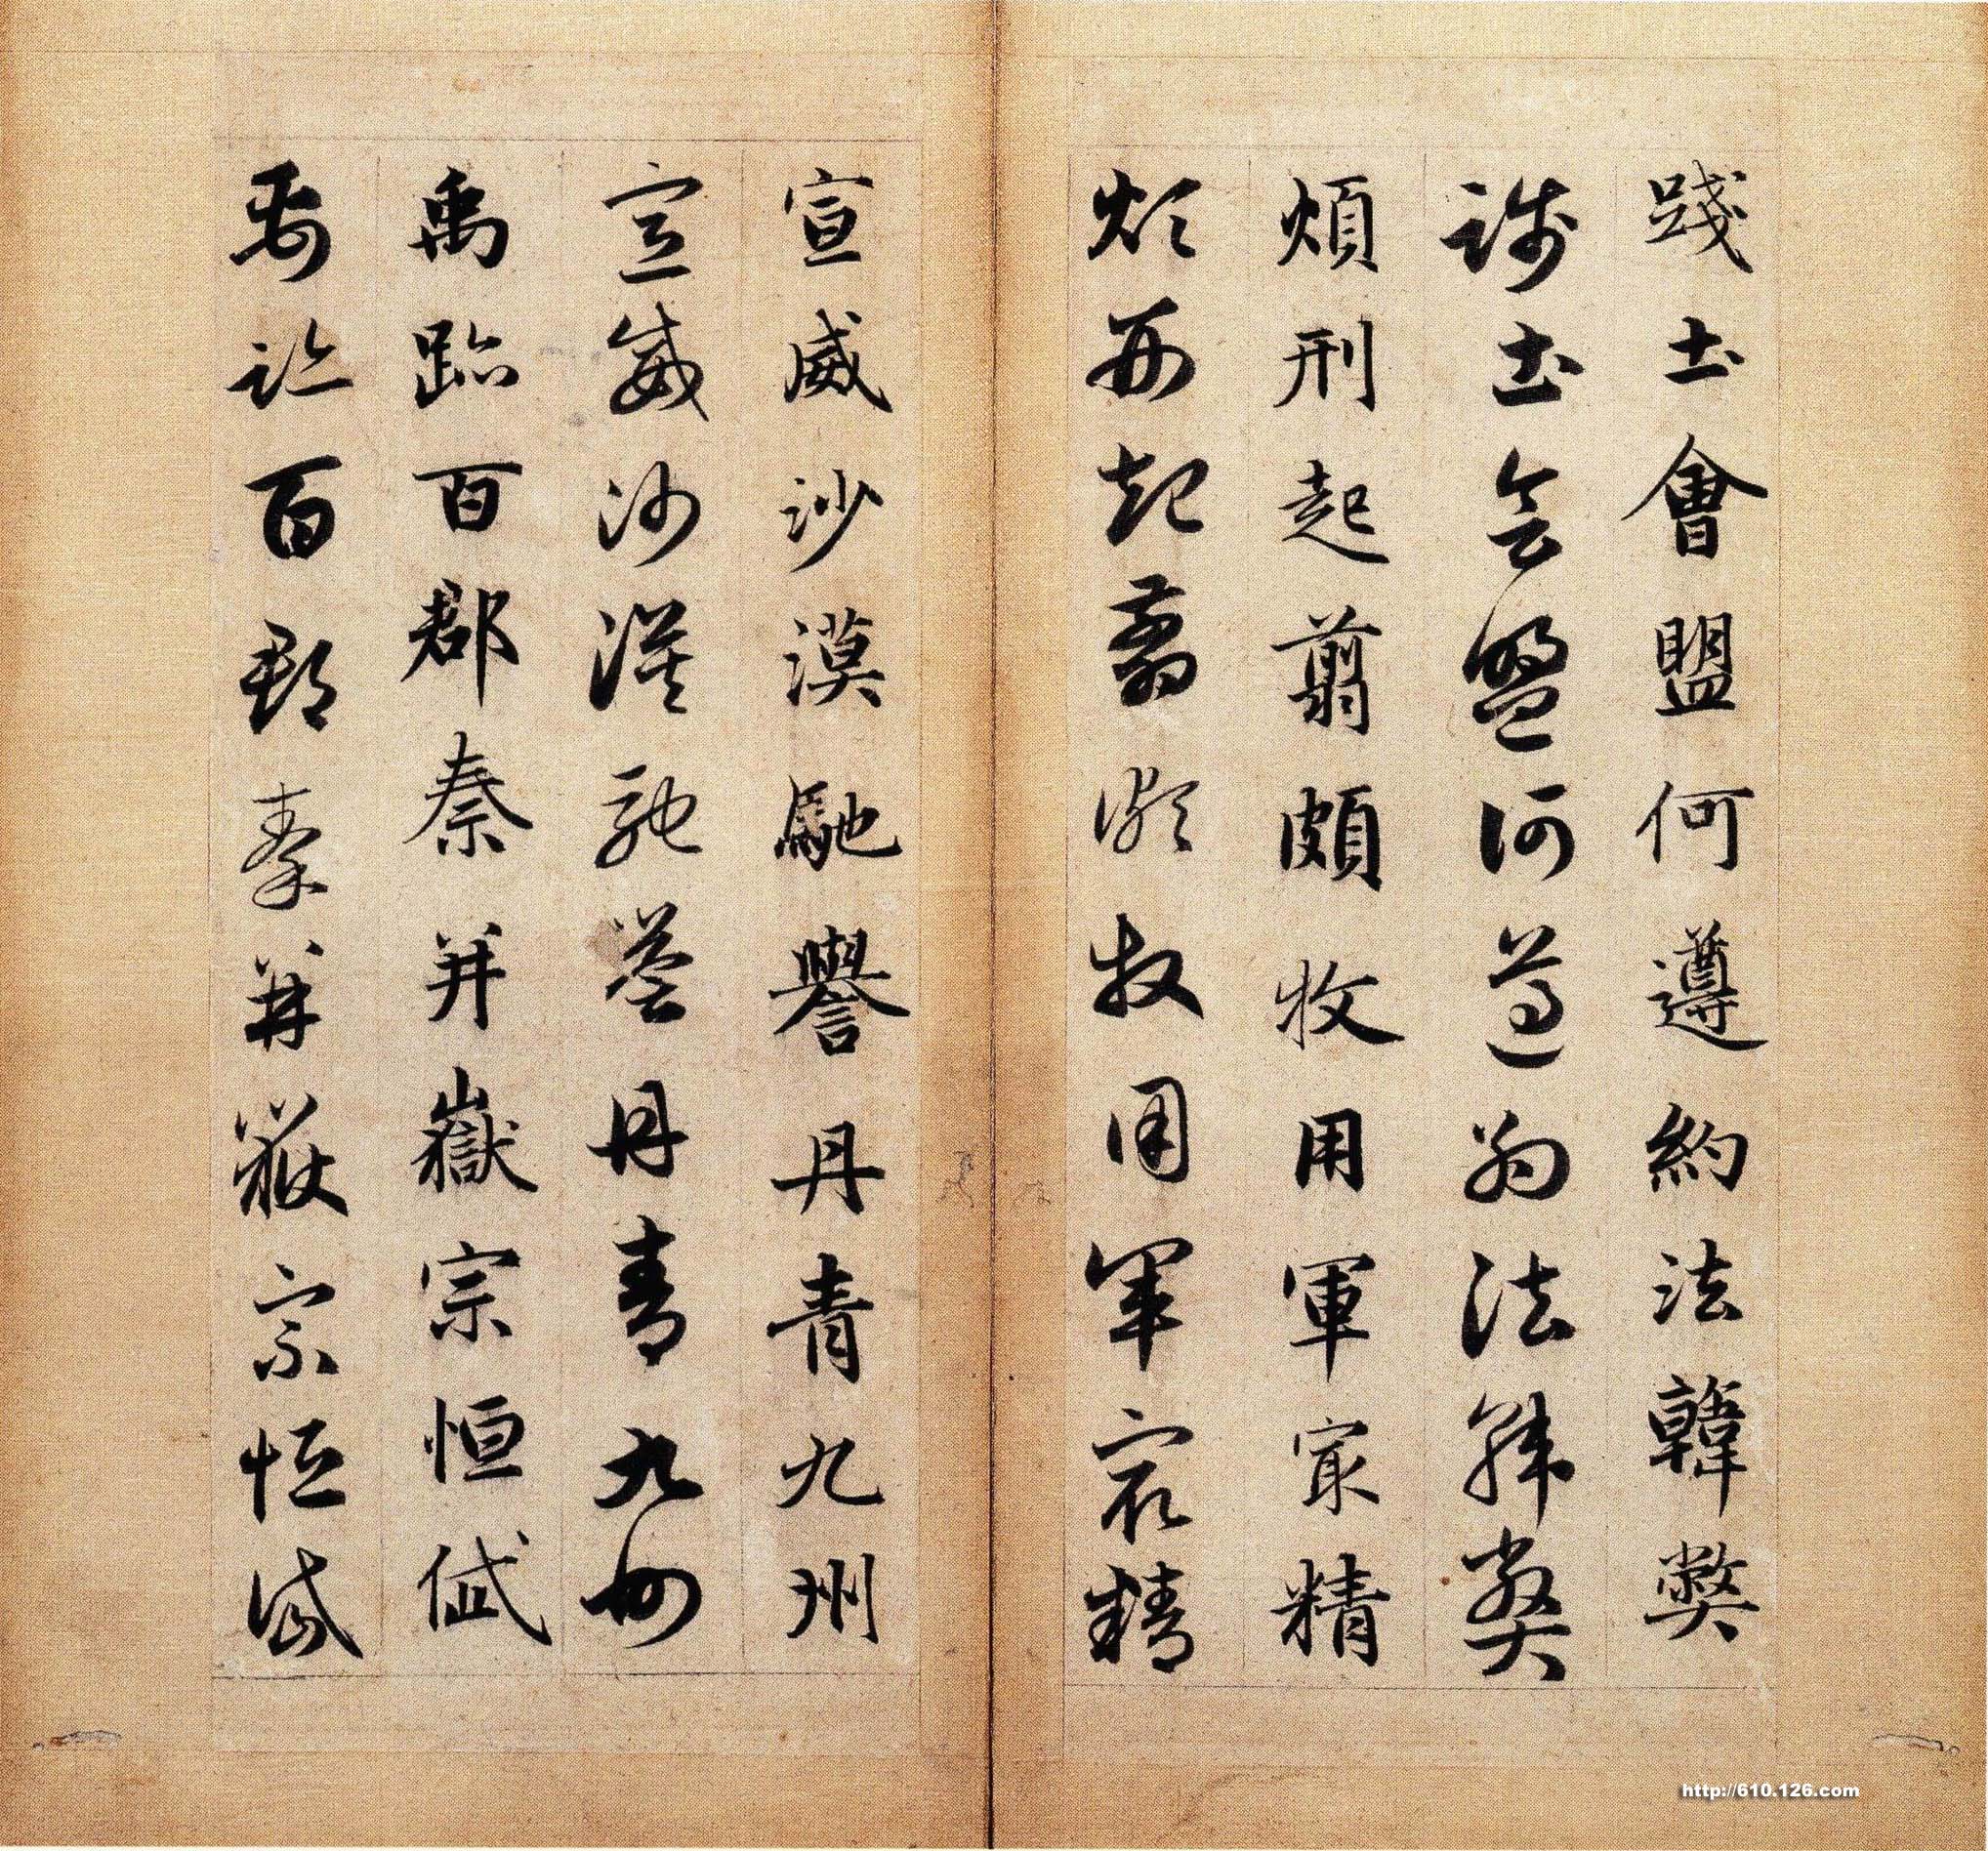 踐土會盟何遵約法韓弊
踐土會盟何遵約法韓弊
煩刑起翦頗牧用軍最精
煩刑起翦頗牧用軍最精
宣威沙漠馳譽丹青九州
宣威沙漠馳譽丹青九州
禹跡百郡秦并嶽宗恒岱
禹跡百郡秦并嶽宗恒岱
http://610.126.com